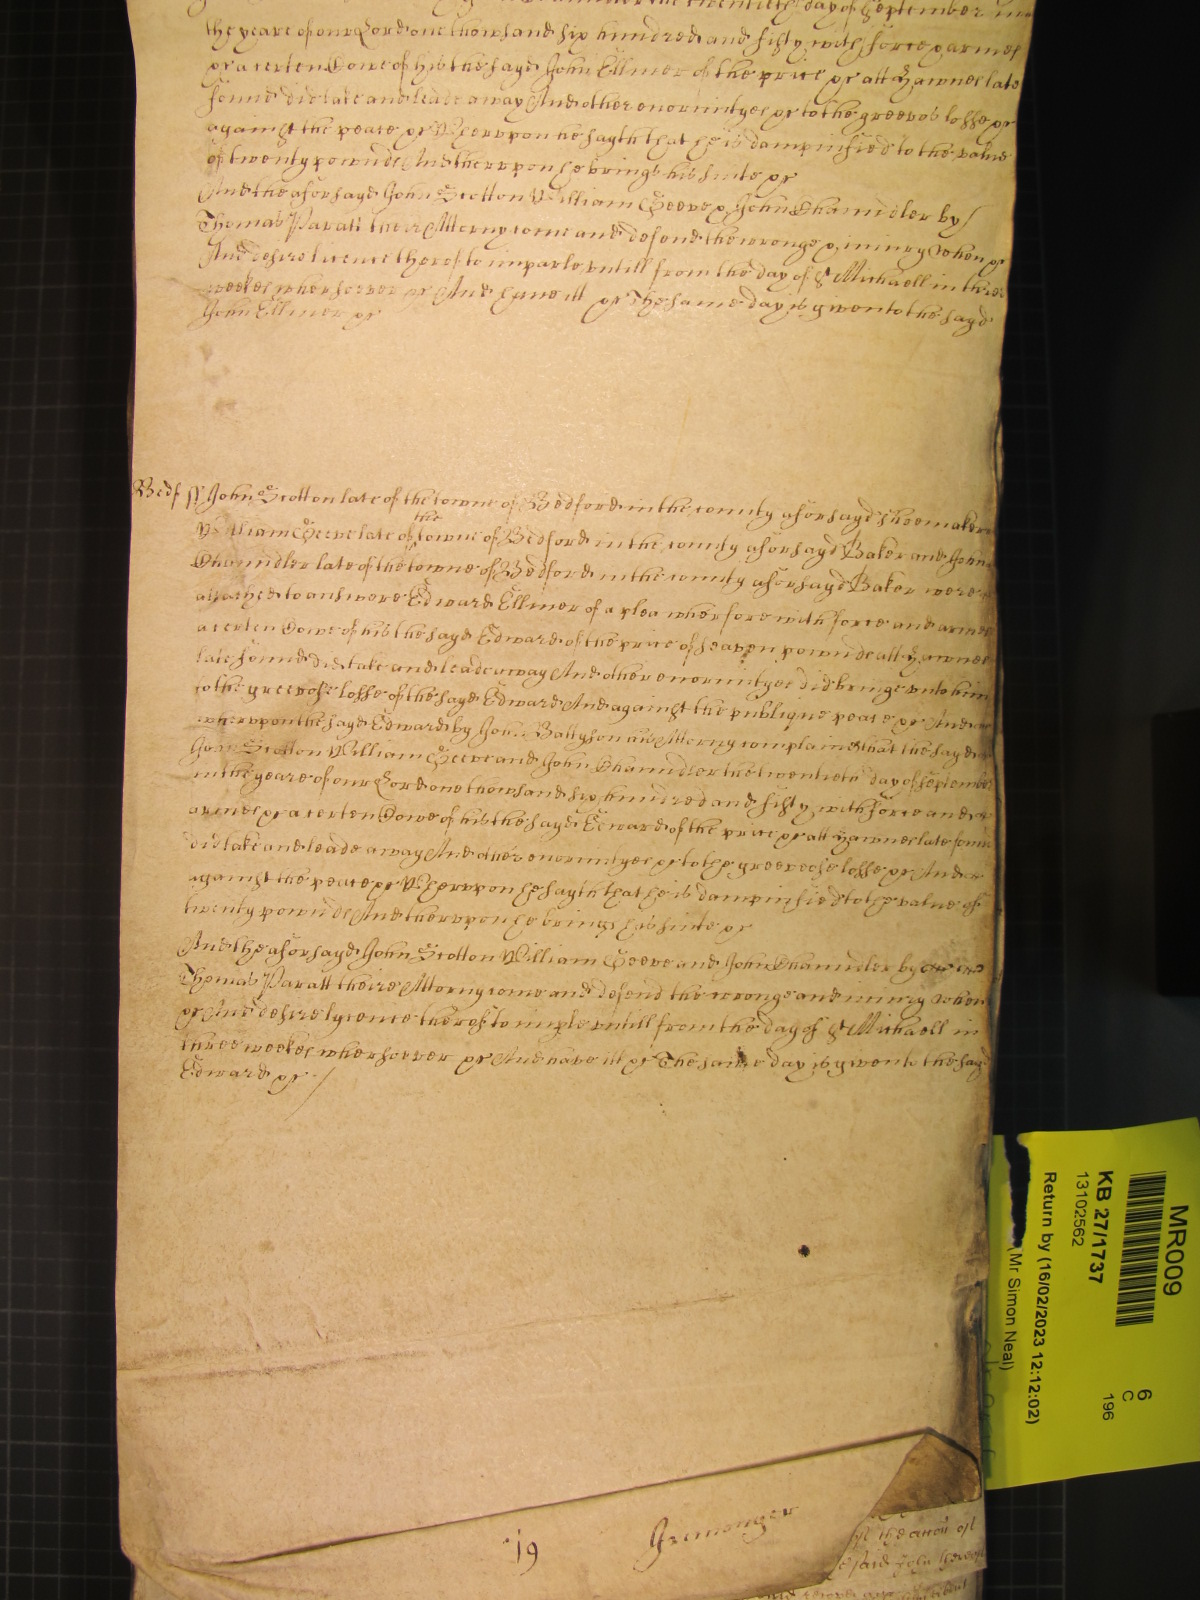 the twentieth day of September in
the yeare of our Lord one thowsand six hundred and fifty with force & armes
&c a certen Cowe of his the sayd John Ellmer of the price &c att Yawnes late
found did take and leade away And other enormityes &c to the greevos losse &c
against the peace &c Wherupon he sayth that he is dampnified to the value
of twenty pownde And therupon he brings his suite &c
And the aforsayd John Scotton William Geeve & John Chaundler by
Thomas Paratt their Attorny come and defend the wronge & iniury when &c
And desire licence therof to imparle untill from the day of St Michaell in three
weekes whersoever &c And have itt &c The same day is given to the sayd
John Ellmer &c
Bedf ss John Scotton late of the towne of Bedford in the county aforsayd shoemaker
William Geeve late of the towne of Bedford in the county aforsayd Baker and John
Chaundler late of the towne of Bedford in the county aforsayd Baker were
attached to answere Edward Ellmer of a plea wherfore with force and armes
a certen Cowe of his the sayd Edward of the price of seaven pownde att Yawnes
late found did take and leade away And other enormityes did bringe unto him
to the greevose losse of the sayd Edward And against the publique peace &c And
wherupon the sayd Edward by John Battyson his Attorny complaines that the sayd
John Scotton William Geeve and John Chaundler the twentieth day of September
in the yeare of our Lord one thowsand six hundred and fifty with force and
armes &c a certen Cowe of his the sayd Edward of the price &c att Yawnes late found
did take and leade away And other enormityes &c to the greevose losse &c And
against the peace &c Wherupon he sayth that he is dampnified to the value of
twenty pownde And therupon he brings his suite &c
And the aforsayd John Scotton William Geeve and John Chaundler by
Thomas Paratt theire Attorny come and defend the wronge and iniury when
&c And desire lycence therof to imple untill from the day of St Michaell in
three weekes whersoever &c And have itt &c The same day is given to the sayd
Edward &c
19 Iremonger
the said John
MR009
KB 27/1737
13102562
6
C
196
Return by (16/02/2023 12:12:02)
(Mr Simon Neal)